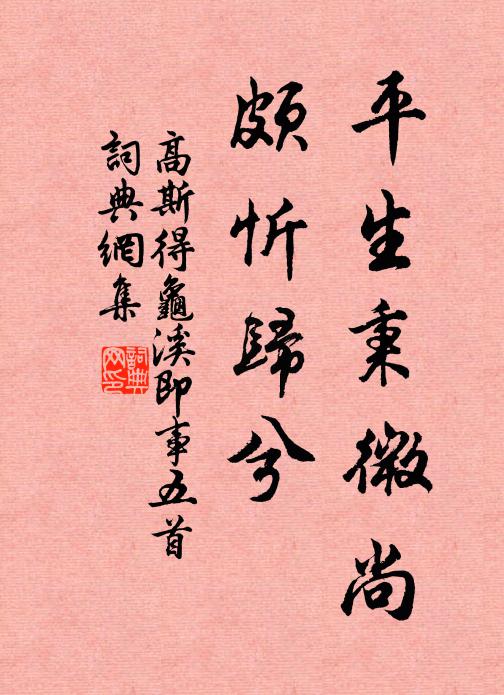 平生秉微尚
頗忻歸兮
高斯得龜溪即事五首
詞典網集
詞典网印